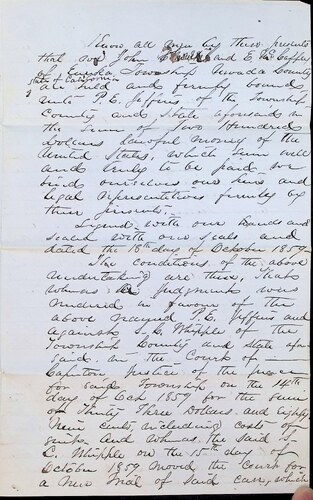 Know all men by these presents
that we John and E. Mc
of Eureka Township Nevada County
State of California
are held and firmly bound
unto P. E. Jeffins of the Township
County and State aforesaid in
the sum of Two Hundred
Dollars lawful money of the
United States, which sum well
and truly to be paid we
bind ourselves our heirs and
legal representatives firmly by
these presents.
Signed with our hands and
sealed with our seals and
dated the 18th day of October 1859
The conditions of the above
undertaking are these. That
whereas a Judgment was
rendered in favour of the
above named P. E. Jeffins and
against S. C. Whipple of the
Township County and State afore
said in the Court of
Justice of the peace
for said Township on the 14th
day of Oct 1859 for the sum
of Thirty Three Dollars and Eighty
Nine cents, including costs of
suit. And whereas the said S.
C. Whipple on the 15th day of
October 1859 moved the Court for
a New Trial of said case, which